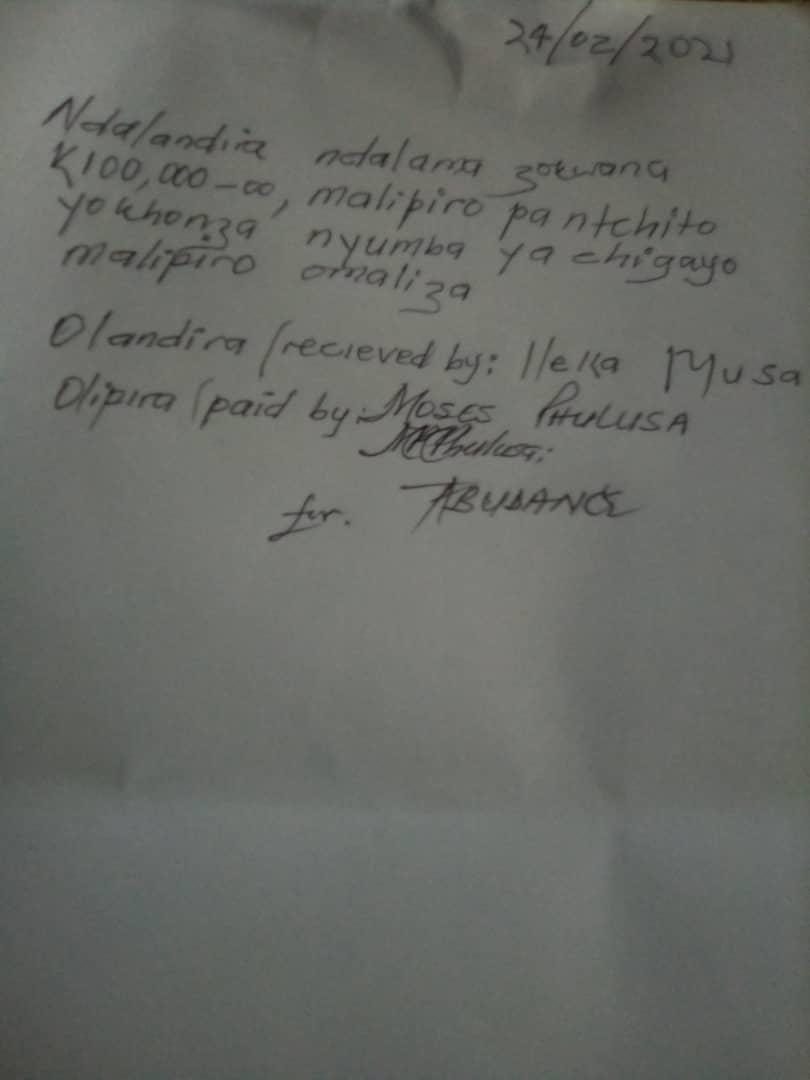 24/02/2021
Ndalandira ndalama zokwana
K100,000-00, malipiro pa ntchito
yokhonza nyumba ya chigayo
malipiro omaliza
Olandira (recieved by: Ileka Musa
Olipira (paid by: MOSES PHULUSA
for. ABUDANCE